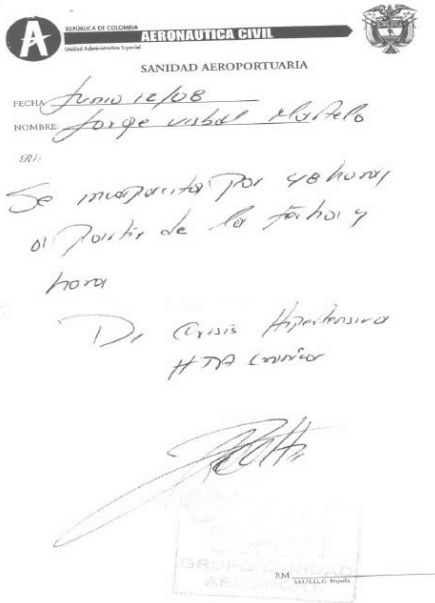 REPÚBLICA DE COLOMBIA
AERONAUTICA CIVIL
Unidad Administrativa Especial
SANIDAD AEROPORTUARIA
FECHA Junio 12/08
NOMBRE: Jorge Visbal Martelo
R/:
Se incapacita por 48 horas
a partir de la fecha y
hora
Dx Crisis Hipertensiva
HTA cronica
GRUPO SANIDAD
RM